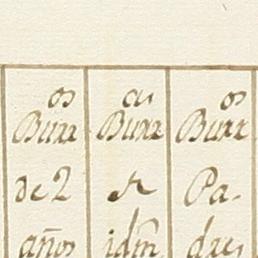 Burr^os Burr^as Burr^os
de 2 Pa-
años idm̃ dres